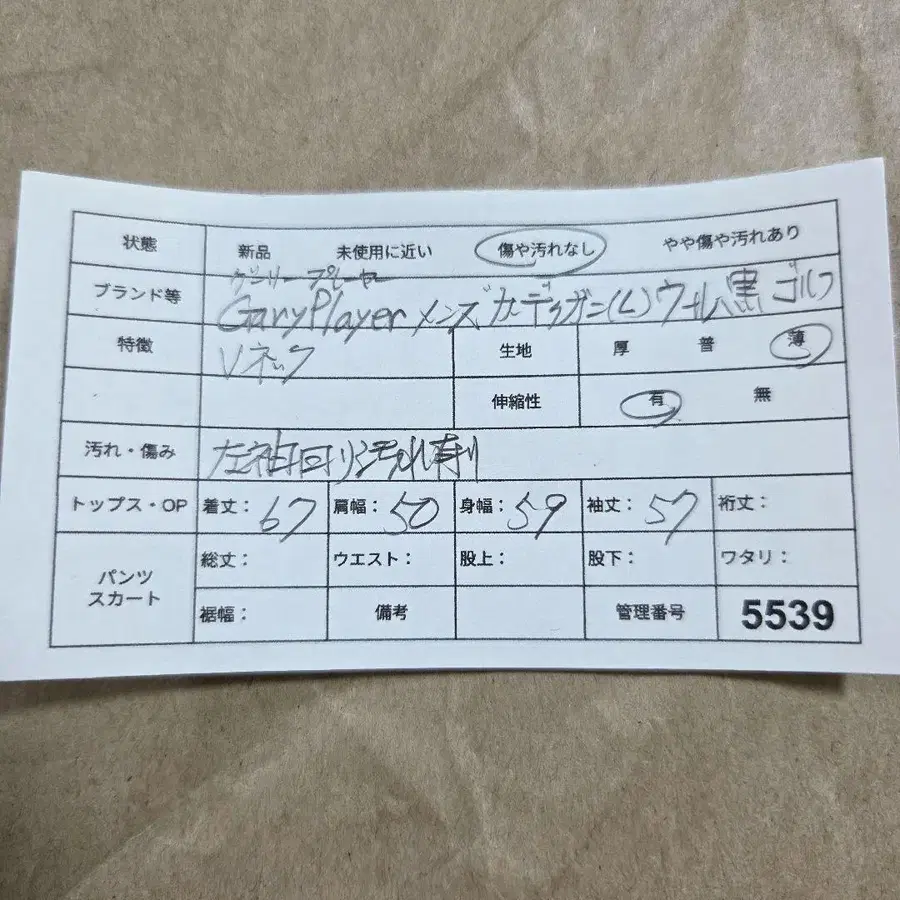 状態 新品 未使用に近い 傷や汚れなし やや傷や汚れあり
ゲーリープレーヤー
ブランド等 GaryPlayer メンズ カーディガン(L)ウール 黒 ゴルフ
特徴 Vネック 生地 厚 普 薄
伸縮性 有 無
汚れ・傷み 左袖回り汚れ有り
トップス・OP 着丈: 67 肩幅: 50 身幅: 59 袖丈: 57 裄丈:
パンツ スカート 総丈: ウエスト: 股上: 股下: ワタリ:
裾幅: 備考 管理番号 5539